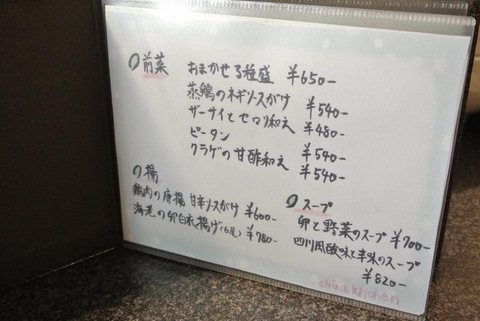 前菜
おまかせ3種盛 ¥650-
蒸鶏のネギソースがけ ¥540-
ザーサイとセロリ和え ¥480-
ピータン ¥540-
クラゲの甘酢和え ¥540-
揚
鶏肉の唐揚 甘辛ソースがけ ¥600-
海老の卵白衣揚げ ¥780-
スープ
卵と野菜のスープ ¥700-
四川風酸味と辛味のスープ
¥820-
china kitchen